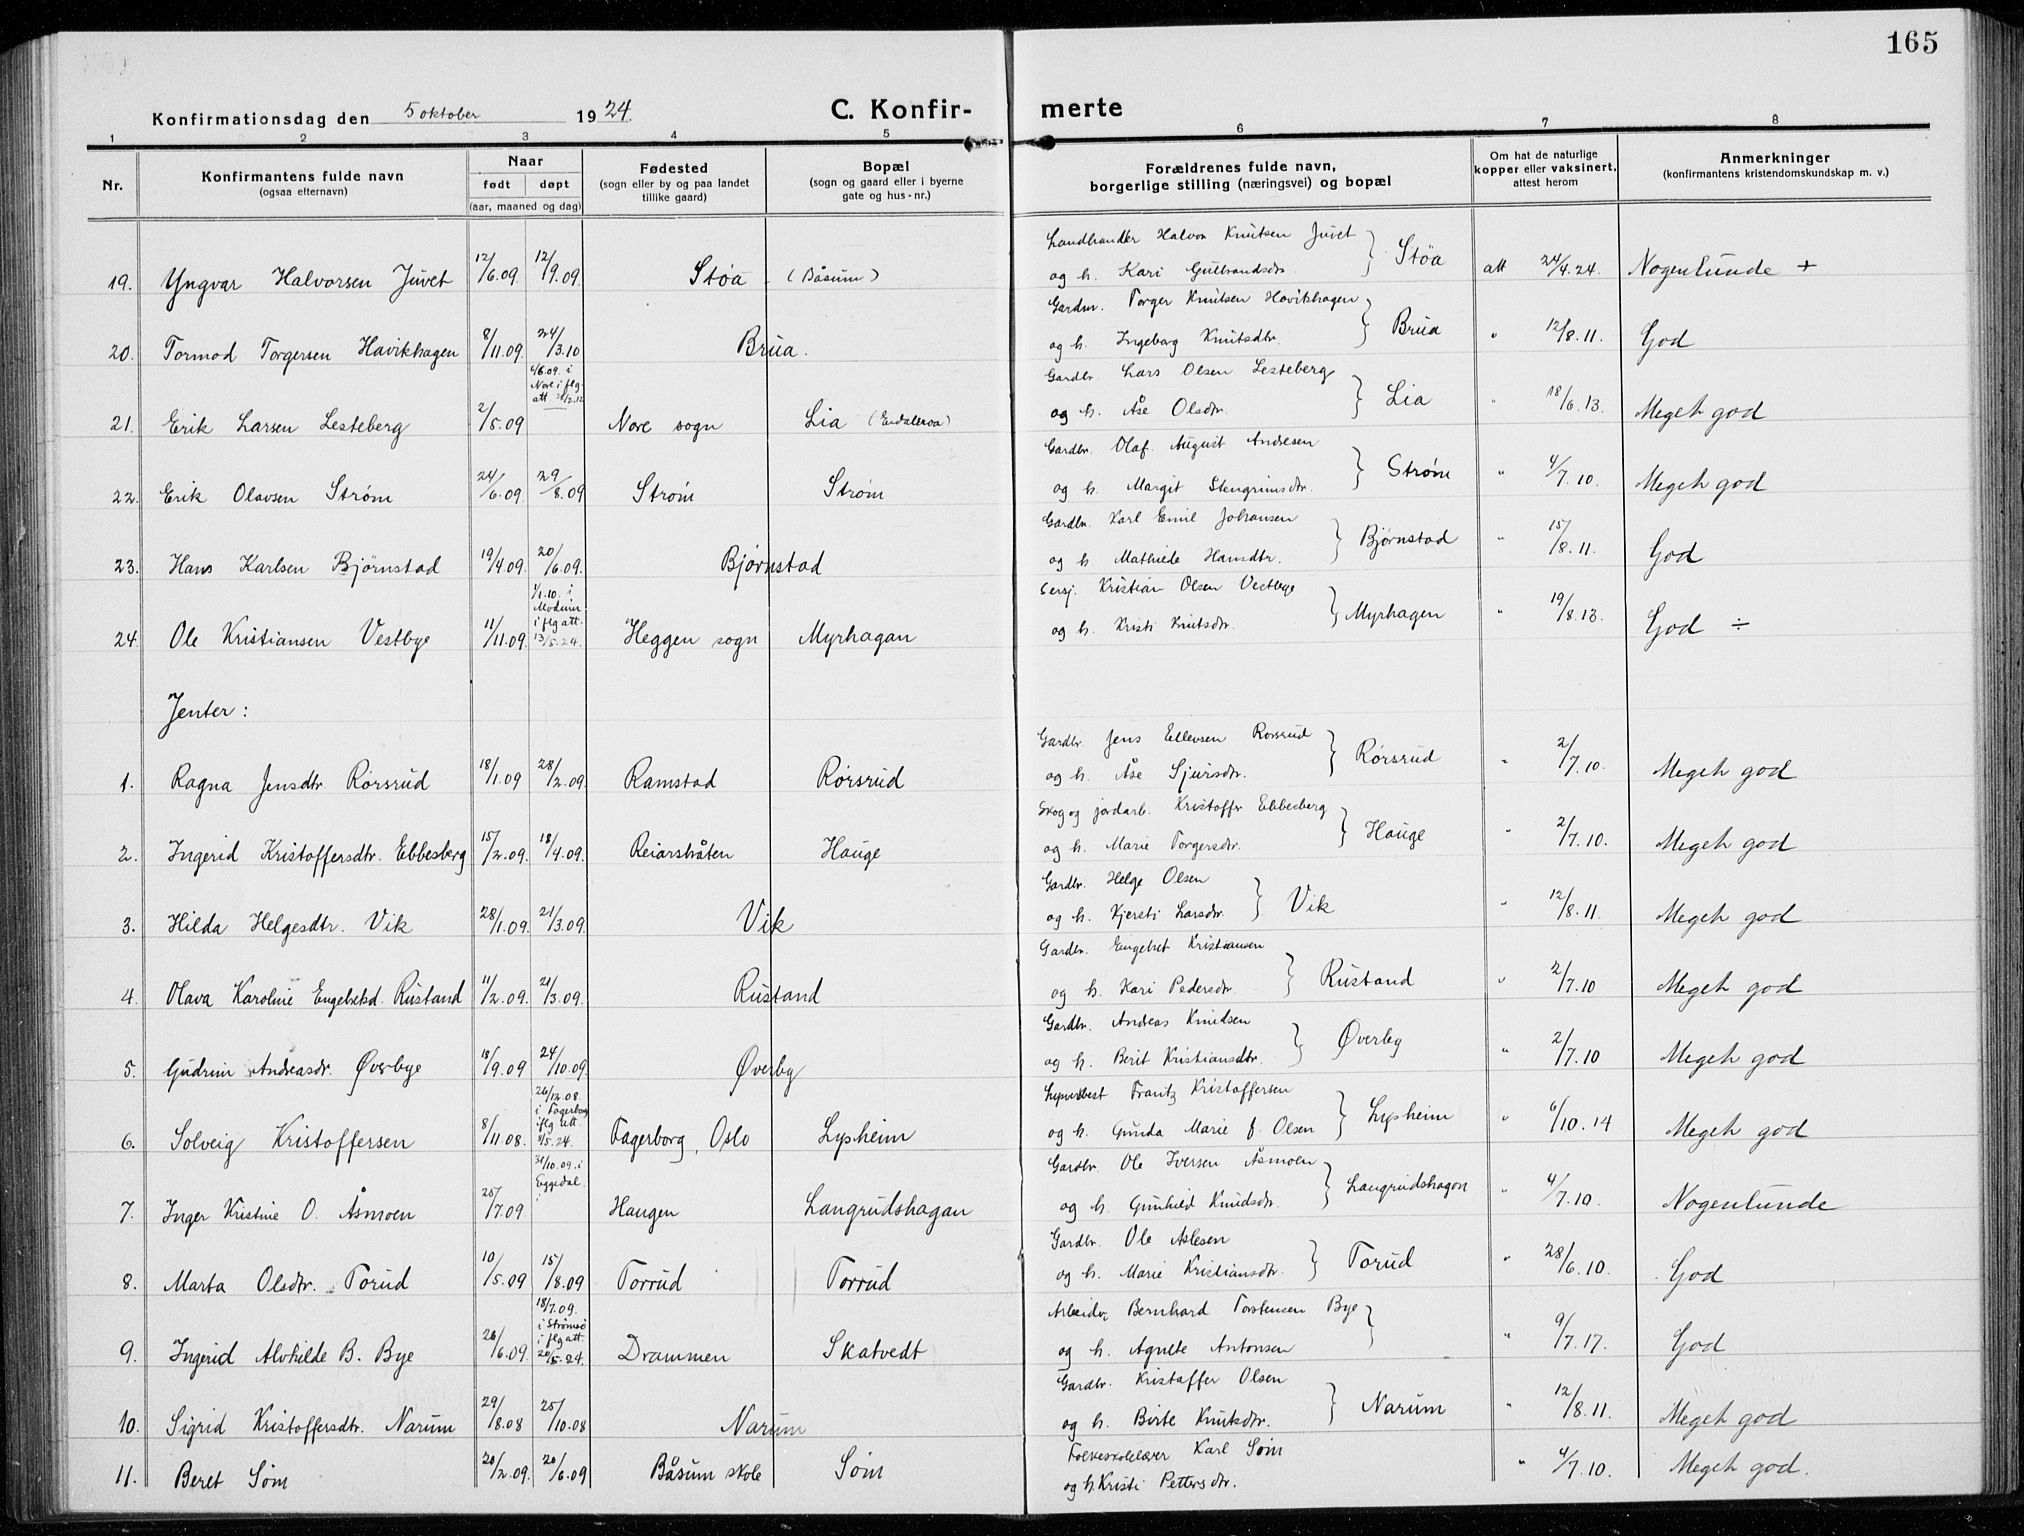 165
Konfirmationsdag den 5 oktober 1924.
C. Konfir- merte
1 2 3 4 5 6 7 8
Nr.
Konfirmantens fulde navn
(ogsaa efternavn)
Naar
født døpt
(aar, maaned og dag)
Fødested
(sogn eller by og paa landet
tillike gaard)
Bopæl
(sogn og gaard eller i byerne
gate og hus-nr.)
Forældrenes fulde navn,
borgerlige stilling (næringsvei) og bopæl
Om hat de naturlige
kopper eller vaksinert,
attest herom
Anmerkninger
(konfirmantens kristendomskundskap m. v.)
Landhandler Halvor Knutsen Juvet
19. Yngvar Halvorsen Juvet 12/6.09 12/9.09 Støa (Båsum) og h. Kari Gulbrandsdtr. } Støa att 24/4.24. Nogenlunde +
Gardm. Torger Knutsen Havikhagen
20. Tormod Torgersen Havikhagen 8/11.09. 24/3.10 Brua. og h. Ingebarg Knutsdtr. } Brua " 12/8.11. God
4/6.09. i
Nore i flg.
att.
Gardbr. Lars Olsen Lesteberg
21. Erik Larsen Lesteberg 2/5.09 Nore sogn Lia og h. Åse Olsdtr. } Lia " 18/6.13. Meget god
Gardbr. Olaf August Andresen
22. Erik Olavsen Strøm 24/6.09. 29/8.09 Strøm Strøm og h. Margit Stengrimsdtr. } Strøm " 4/7.10. Meget god
Gardbr. Karl Emil Johansen
23. Hans Karlsen Bjørnstad 19/4.09. 20/6.09. Bjørnstad og h. Mathilde Hansdtr. } Bjørnstad " 15/8.11. God
1/1.10. i
Modum
i flg att.
13/5.24.
Sersj. Kristian Olsen Vestbye
24. Ole Kristiansen Vestbye 11/11.09. Heggen sogn Myrhagan og h. Kristi Knutsdtr. } Myrhagen " 19/8.13. God ÷
Jenter:
Gardbr. Jens Ellevsen Rørsrud
1. Ragna Jensdtr Rørsrud 18/1.09 28/2.09. Ramstad Rørsrud og h. Åse Sjursdtr. } Rørsrud " 2/7.10. Meget god
Skog og jordarb. Kristoffer Ebbesberg
2. Ingerid Kristoffersdtr. Ebbesberg 15/2.09. 18/4.09. Reiarsbråten Hauge og h. Marie Torgersdtr. } Hauge " 2/7.10. Meget god
Gardbr. Helge Olsen
3. Hilda Helgesdtr. Vik 28/1.09. 21/3.09. Vik og h. Kjersti Larsdtr. } Vik " 12/8.11. Meget god
Gardbr. Engebret Kristiansen
4. Olava Karoline Engebretsd. Rustand 11/2.09. 21/3.09. Rustand og h. Kari Pedersdtr. } Rustand " 2/7.10 Meget god
Gardbr. Andreas Knudsen
5. Gudrun Andreasdr. Øverbye 18/9.09 24/10.09. Øverby og h. Berit Kristiansdtr. } Øverby " 2/7.10 Meget god
26/12.08.
i Fagerborg
iflg att.
Frantz Kristoffersen
6. Solveig Kristoffersen 8/11.08. Fagerborg, Oslo Lysheim og h. Gunda Marie f. Olsen } Lysheim " 6/10.14 Meget god
31/10.09. i
Eggedal.
Gardbr. Ole Iversen Åsmoen
7. Inger Kristine O. Åsmoen 25/7.09 Haugen Langrudshagan og h. Gunhild Knudsdtr. } Langrudshagan " 4/7.10. Nogenlunde
Gardbr. Ole Aslesen
8. Marta Olsdtr. Torud 10/5.09 15/8.09 Torrud Torrud og h. Marie Kristiansdtr. } Torud " 28/6.10. God
18/7.09.
i Strømsø
i flg att.
20/5.24.
Arbeider Bernhard Torstensen Bye
9. Ingerid Alvhilde B. Bye 26/6.09. Drammen Skatvedt og h. Agnete Antonsen } " 9/7.17. God
Gardbr. Kristoffer Olsen
10. Sigrid Kristoffersdtr. Narum 29/8.08 25/10.08 Narum og h. Birte Knutsdtr. } Narum " 12/8.11. Meget god
Folkeskolelærer Karl Søm
11. Beret Søm 20/2.09. 20/6.09 Båsum skole Søm og h. Kristi Pettersdtr. " 4/7.10. Meget god.